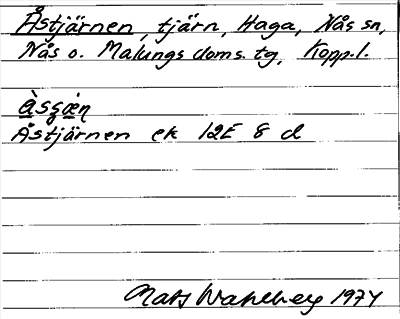 Åstjärnen, tjärn, Haga, Nås sn,
Nås o. Malungs doms. tg, Kopp. l.
Åstjärnen ek 12E 8 d
Mats Wahlberg 1974